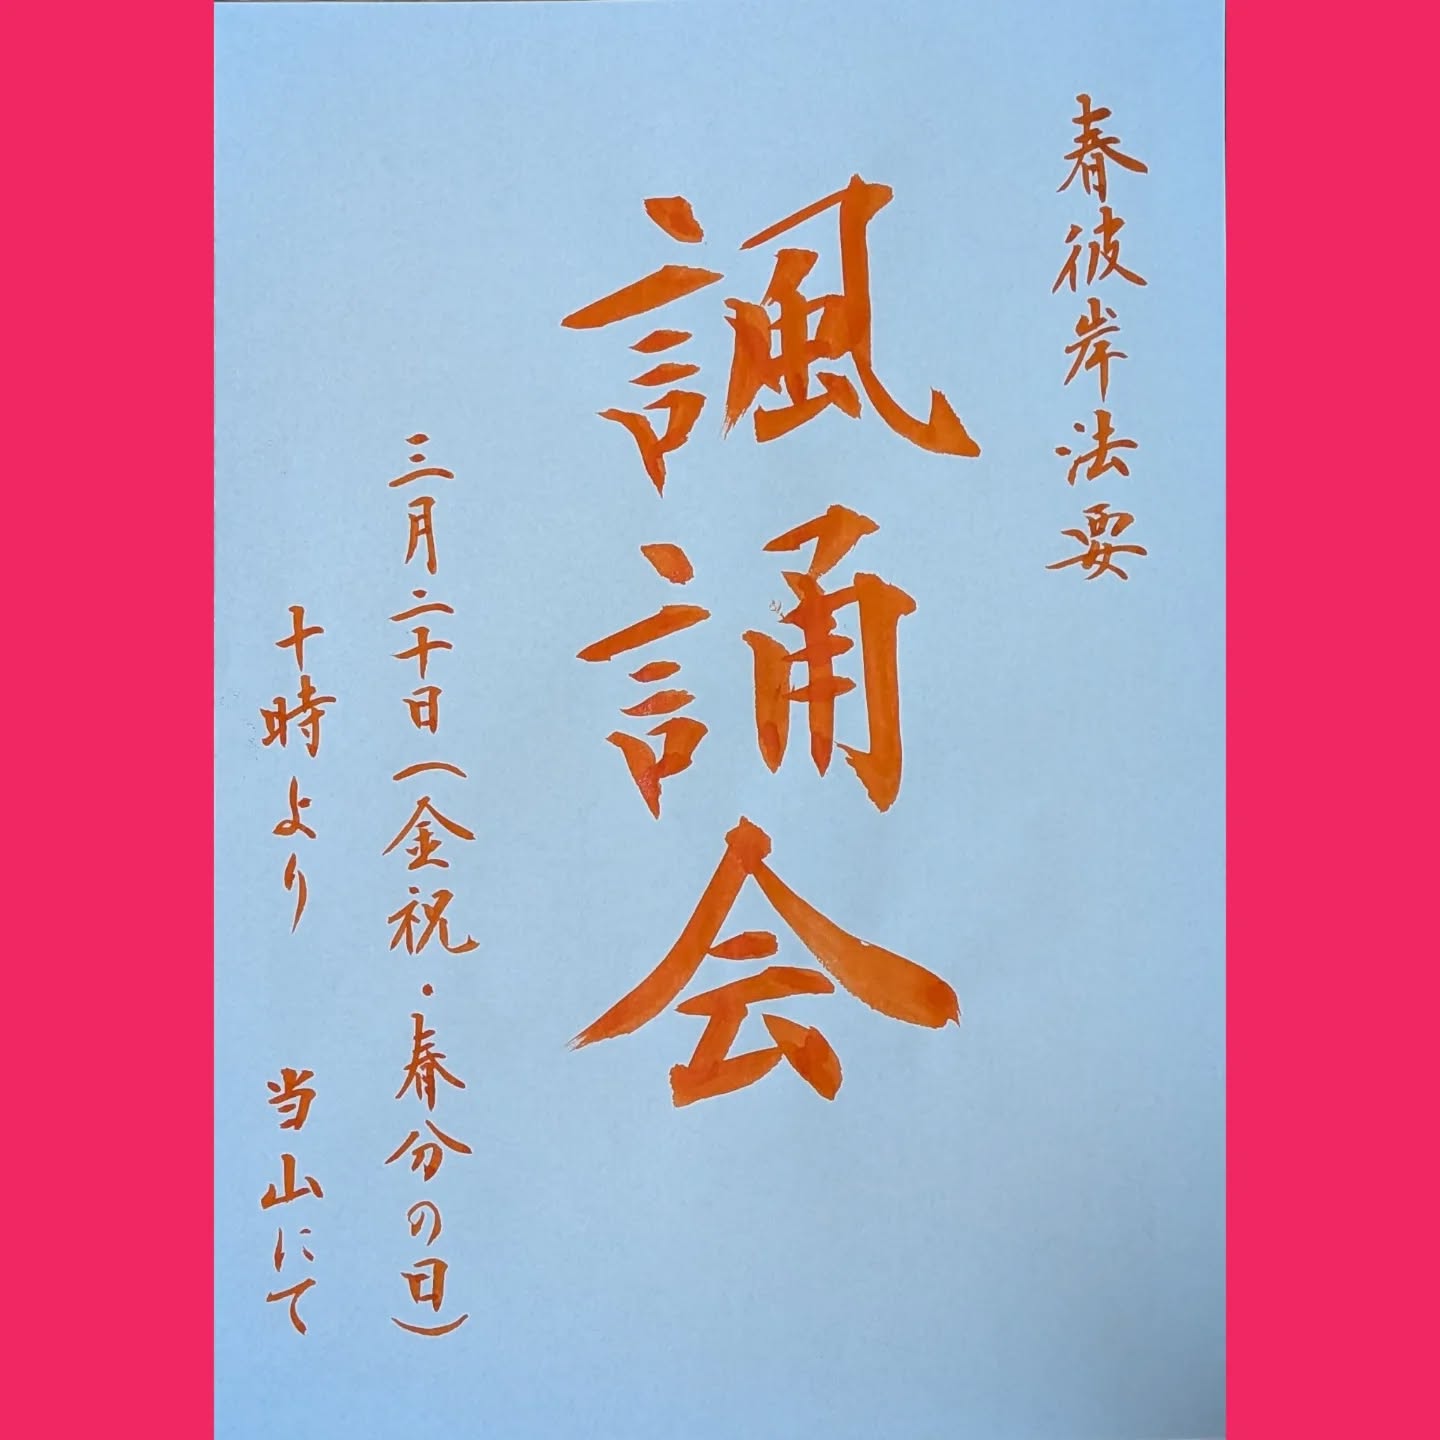 春彼岸法要
諷誦会
三月二十日(金祝・春分の日)
十時より 当山にて